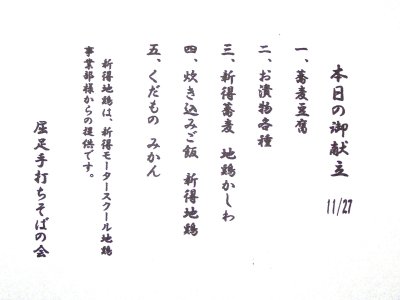 本日の御献立 11/27
一、蕎麦豆腐
二、お漬物各種
三、新得蕎麦 地鶏かしわ
四、炊き込みご飯 新得地鶏
五、くだもの みかん
新得地鶏は、新得モータースクール地鶏
事業部様からの提供です。
屈足手打ちそばの会